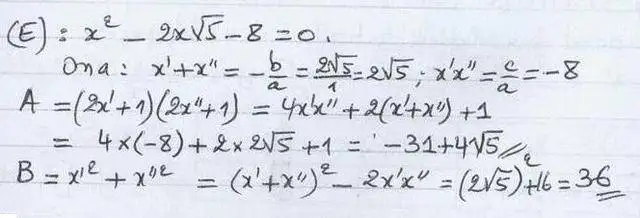 (E) : x² - 2x√5 - 8 = 0.
On a : x' + x'' = -b/a = 2√5/1 = 2√5 ; x'x'' = c/a = -8
A = (2x'+1)(2x''+1) = 4x'x'' + 2(x'+x'') + 1
= 4×(-8) + 2×2√5 + 1 = -31+4√5
B = x'² + x''² = (x'+x'')² - 2x'x'' = (2√5)²+16 = 36